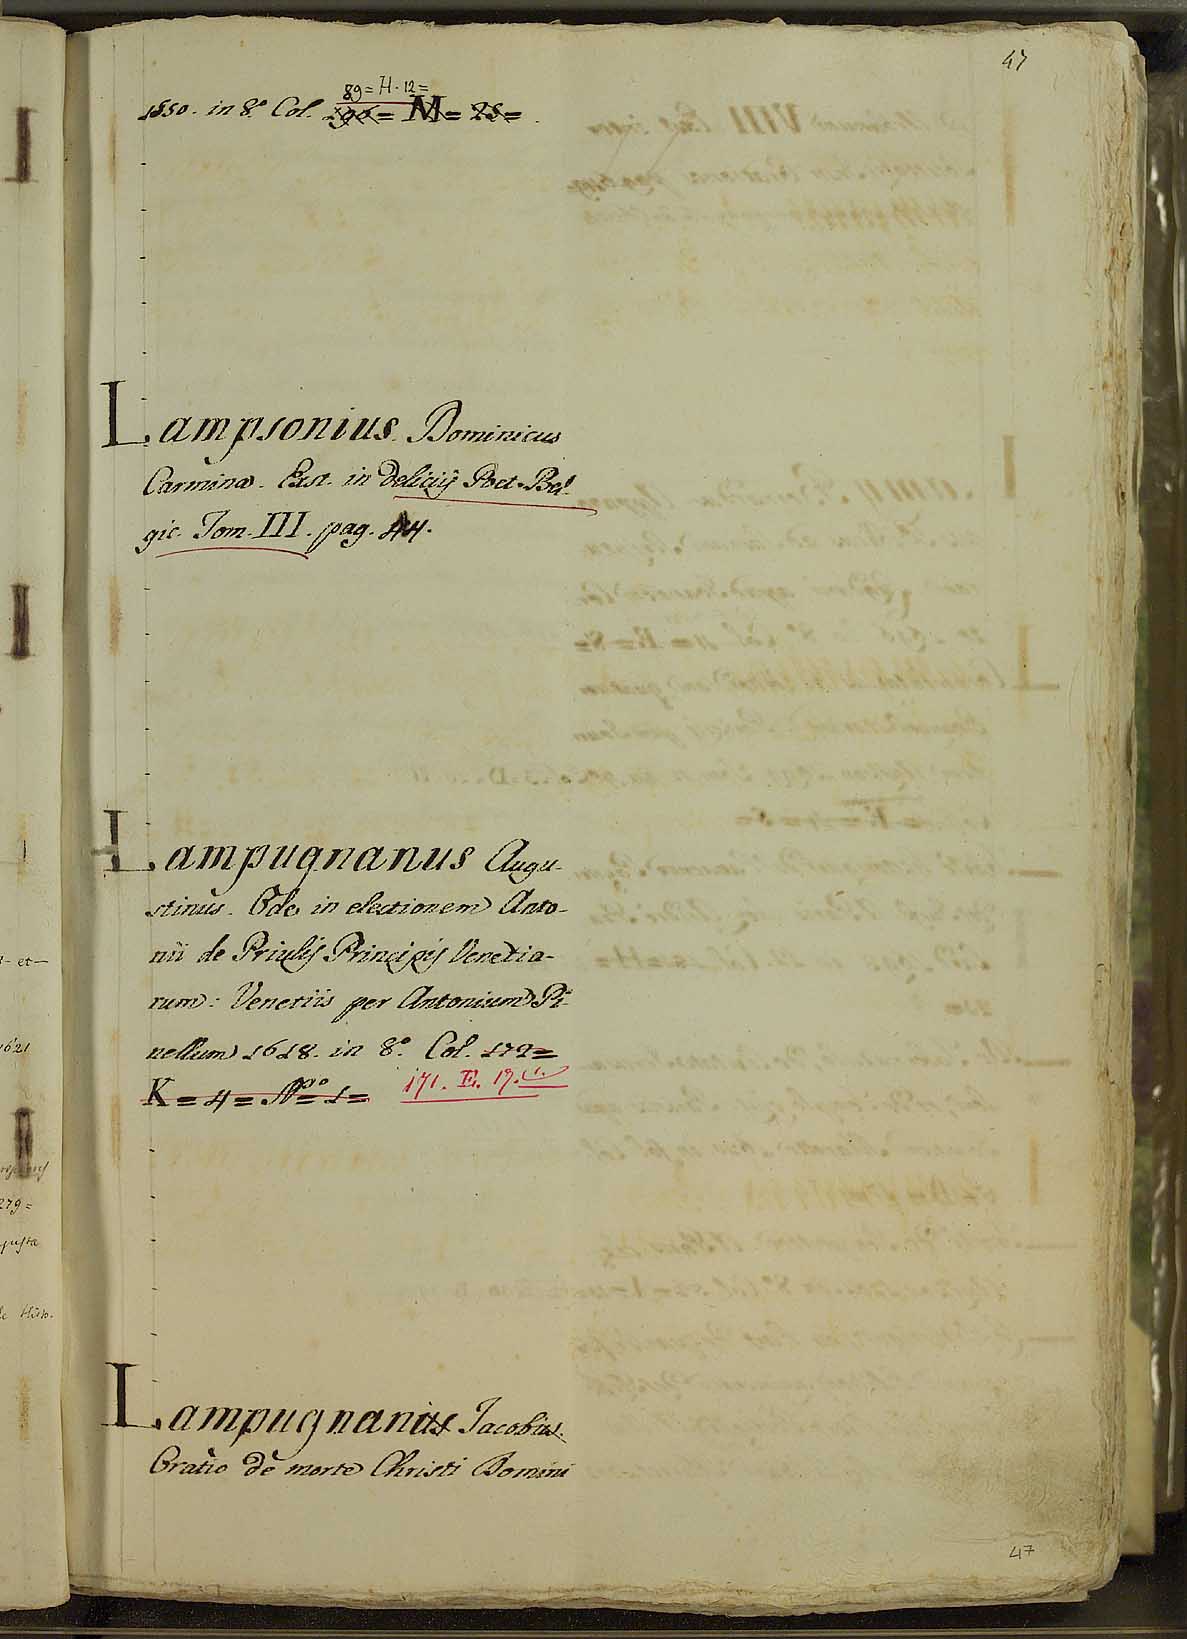 47
89 = H. 12 =
1550. in 8.° Col. 196 = M = 28 = .
Lampsonius. Dominicus
Carmina. Ext. in Delicijs Poet. Bel-
gic. Tom. III. pag. 44.
Lampugnanus Augu-
stinus. Ode in electionem Anto-
nii de Priulijs Principis Venetia-
rum: Venetiis per Antonium Pi-
nellum 1618. in 8.° Col. 172 =
K = 4 = N.° 1 = 171. E. 19. (1.
Lampugnanus Jacobus.
Oratio de morte Christi Domini
47
- et -
1621
279 =
justa